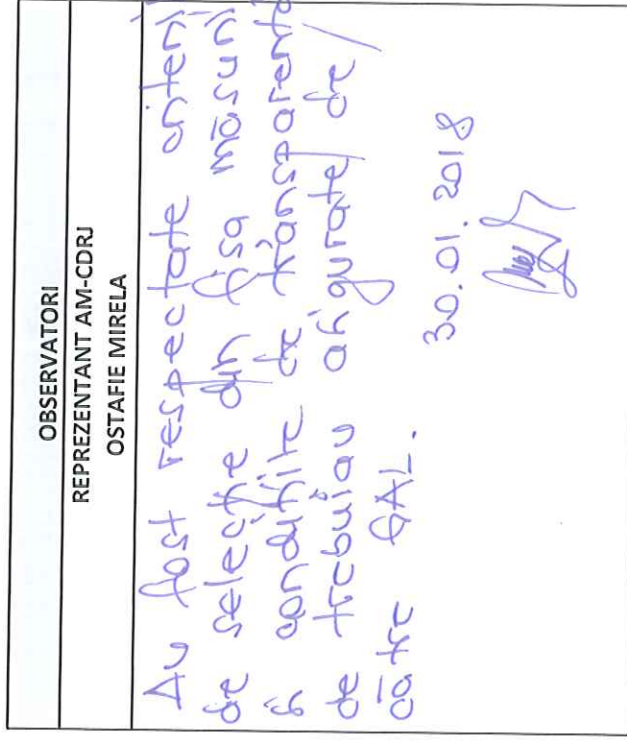 OBSERVATORI
REPREZENTANT AM-CDRJ
OSTAFIE MIRELA
Au fost respectate criterii
de selecție din fișa măsurii
și condițiile de transparență
de trebuiau asigurate de
către GAL.
30.01.2018